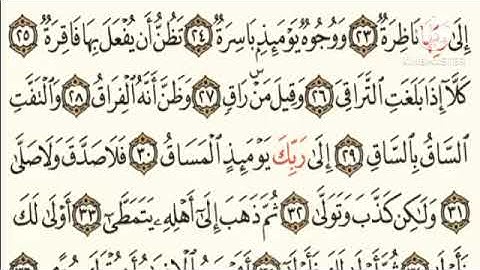 إِلَىٰ رَبِّهَا نَاظِرَةٌ ٢٣ وَوُجُوهٌ يَوْمَئِذٍۭ بَاسِرَةٌ ٢٤ تَظُنُّ أَن يُفْعَلَ بِهَا فَاقِرَةٌ ٢٥
كَلَّآ إِذَا بَلَغَتِ ٱلتَّرَاقِىَ ٢٦ وَقِيلَ مَنْۜ رَاقٍ ٢٧ وَظَنَّ أَنَّهُ ٱلْفِرَاقُ ٢٨ وَٱلْتَفَّتِ
ٱلسَّاقُ بِٱلسَّاقِ ٢٩ إِلَىٰ رَبِّكَ يَوْمَئِذٍ ٱلْمَسَاقُ ٣٠ فَلَا صَدَّقَ وَلَا صَلَّىٰ
٣١ وَلَٰكِن كَذَّبَ وَتَوَلَّىٰ ٣٢ ثُمَّ ذَهَبَ إِلَىٰٓ أَهْلِهِۦ يَتَمَطَّىٰٓ ٣٣ أَوْلَىٰ لَكَ